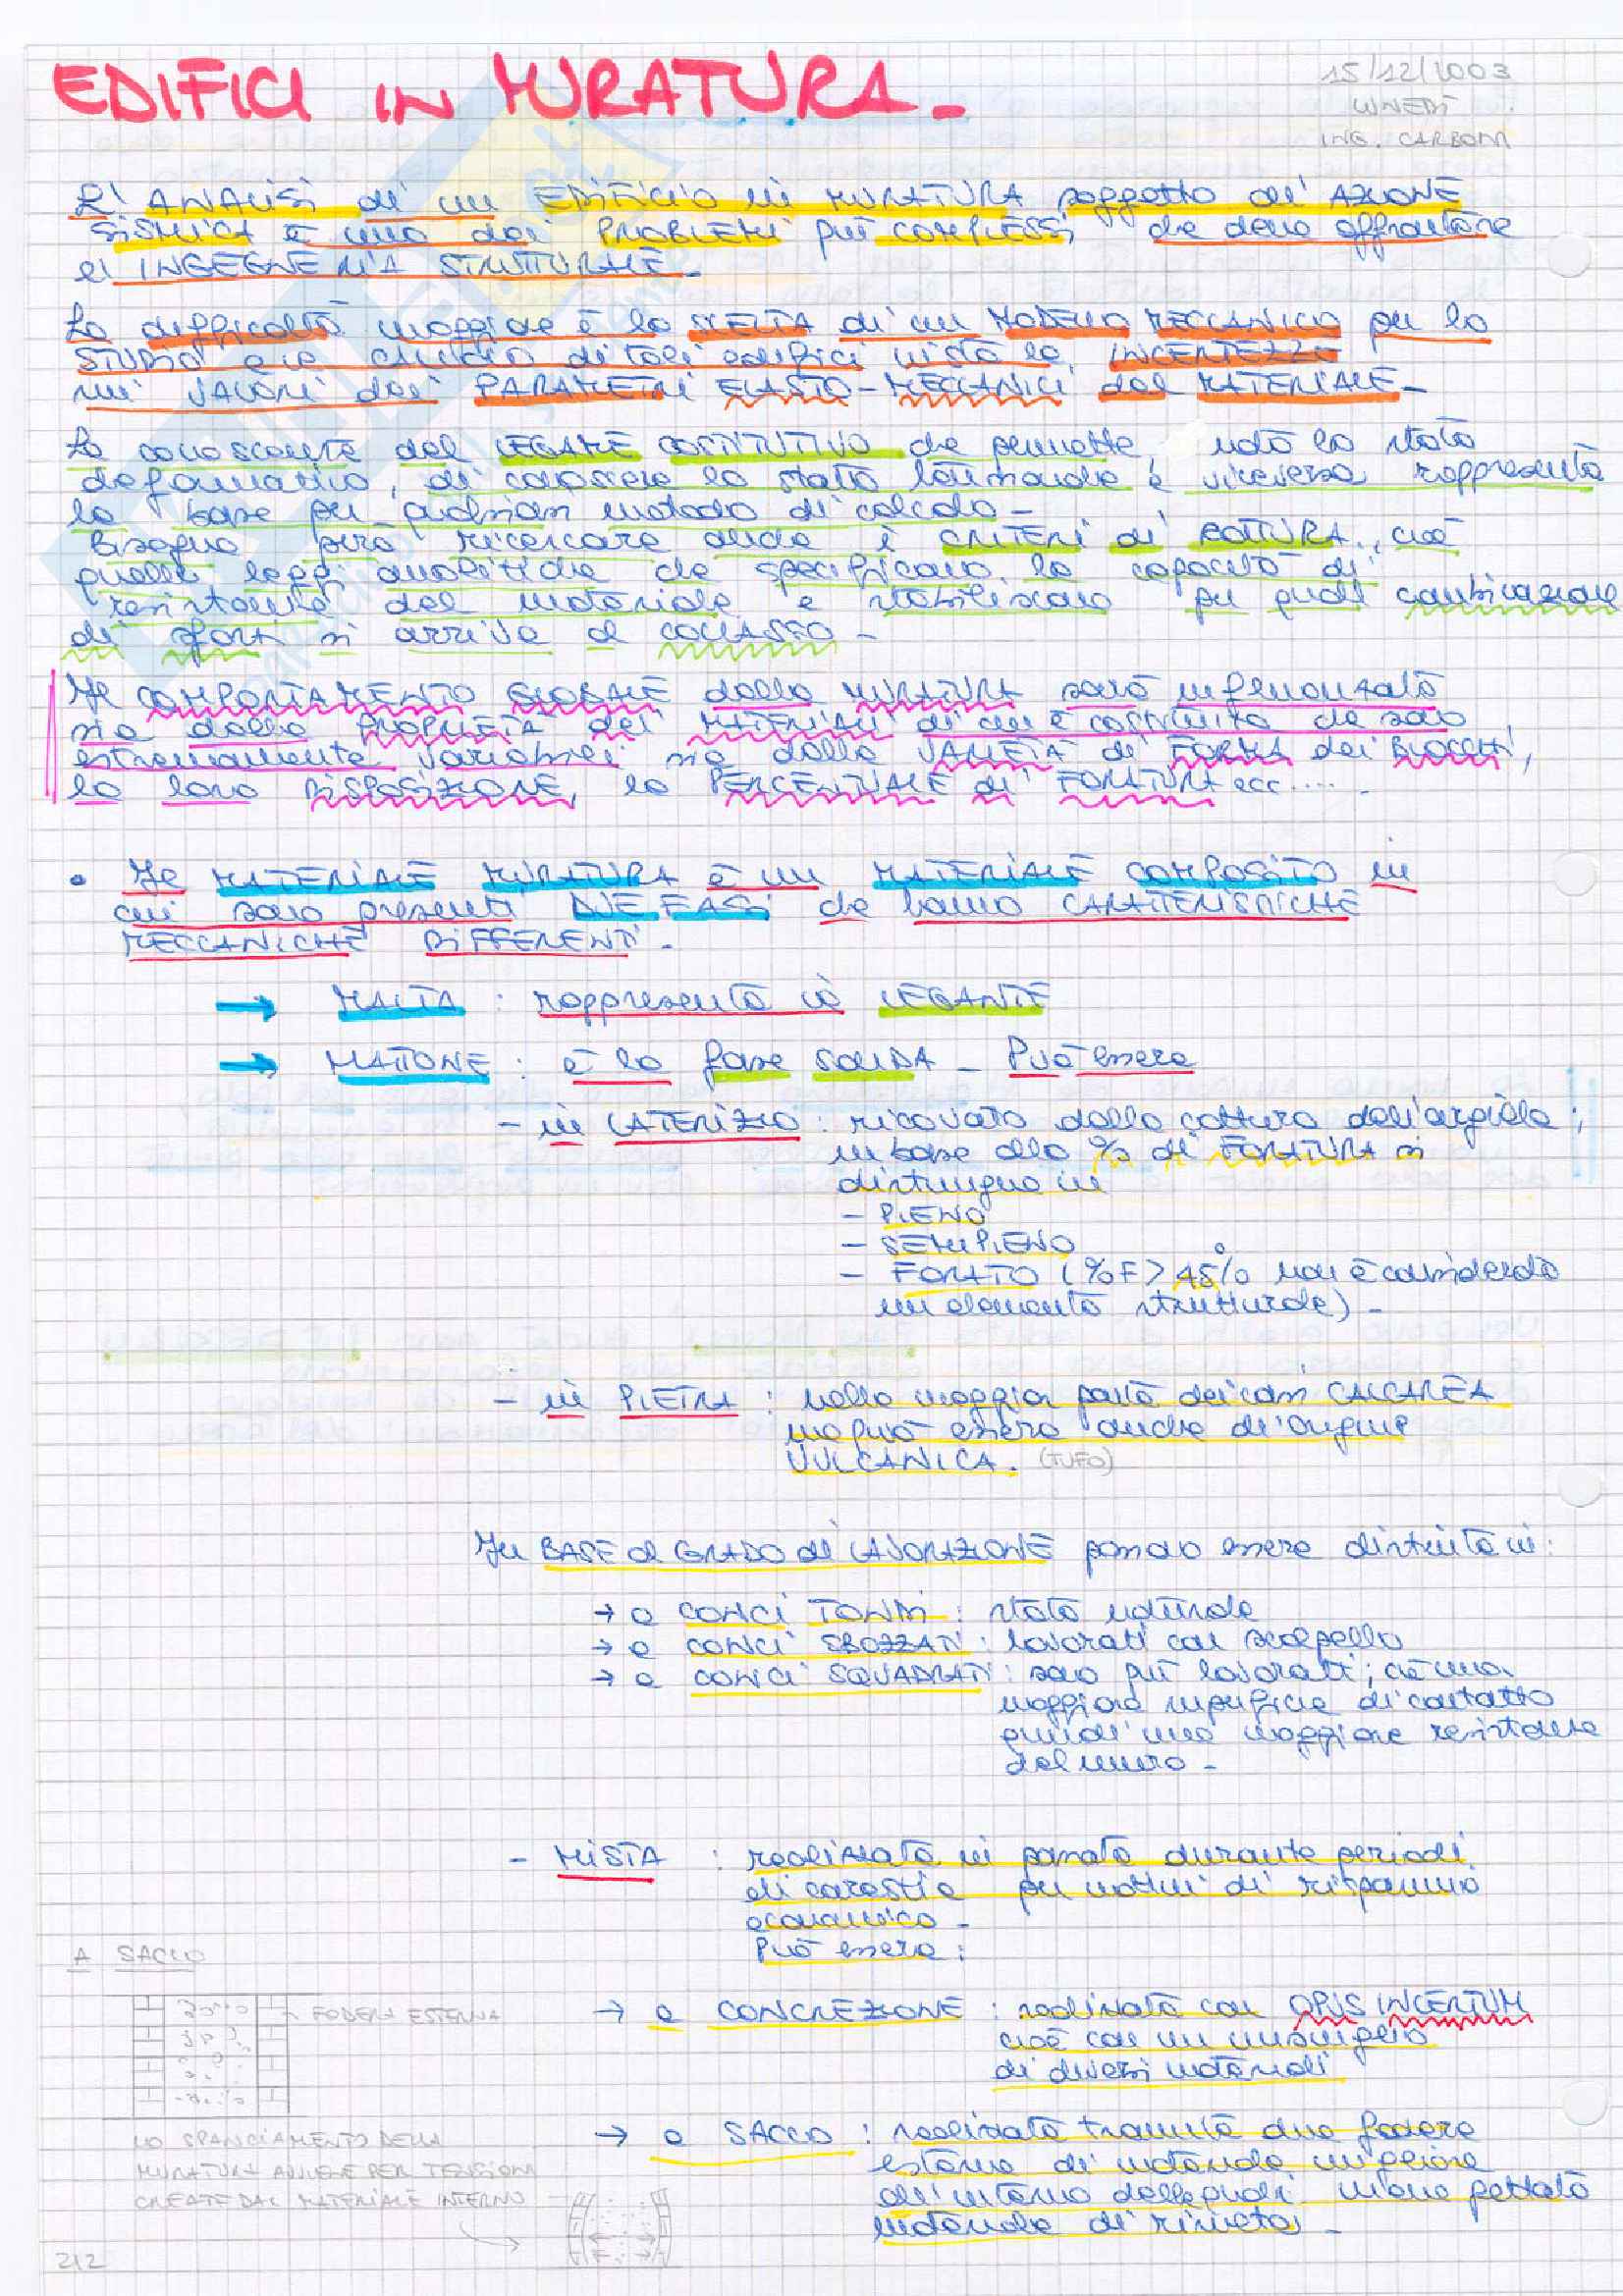 EDIFICI IN MURATURA -
15/12/2003
LUNEDÌ
ING. CARBONI
L'ANALISI di un EDIFICIO in MURATURA soggetto all'AZIONE
SISMICA è uno dei PROBLEMI più COMPLESSI che deve affrontare
l'INGEGNERIA STRUTTURALE -
La difficoltà maggiore è la SCELTA di un MODELLO MECCANICO per lo
STUDIO e il CALCOLO di tali edifici vista le INCERTEZZE
nei VALORI dei PARAMETRI ELASTO-MECCANICI del MATERIALE -
La conoscenza del LEGAME COSTITUTIVO che permette, noto lo stato
deformativo, di conoscere lo stato tensionale e viceversa rappresenta
la base per qualsiasi metodo di calcolo -
Bisogna però ricercare anche i CRITERI di ROTTURA, cioè
quelle leggi analitiche che specificano la capacità di
resistenza del materiale e stabiliscono per quali combinazione
di sforzi si arriva al COLLASSO -
Il COMPORTAMENTO GLOBALE della MURATURA sarà influenzato
sia dalle PROPRIETÀ dei MATERIALI di cui è costituita che sono
estremamente variabili sia dalla VARIETÀ di FORMA dei BLOCCHI,
la loro DISPOSIZIONE, la PERCENTUALE di FORATURA ecc.... .
• Il MATERIALE MURATURA è un MATERIALE COMPOSITO in
cui sono presenti DUE FASI che hanno CARATTERISTICHE
MECCANICHE DIFFERENTI -
→ MALTA : rappresenta il LEGANTE
→ MATTONE : è la fase SOLIDA - Può essere
- in LATERIZIO : ricavato dalla cottura dell'argilla ;
in base alla % di FORATURA si
distingue in
- PIENO
- SEMIPIENO
- FORATO (%F > 45% non è considerato
un elemento strutturale) -
- in PIETRA : nella maggior parte dei casi CALCAREA
ma può essere anche di origine
VULCANICA. (TUFO)
In BASE al GRADO di LAVORAZIONE possono essere distinte in :
→ a CONCI TONDI : stato naturale
→ a CONCI SBOZZATI : lavorati con scalpello
→ a CONCI SQUADRATI : sono più lavorati ; c'è una
maggiore superficie di contatto
quindi una maggiore resistenza
del muro -
- MISTA : realizzata in passato durante periodi
di carestia per motivi di risparmio
economico -
Può essere :
A SACCO
FODERA ESTERNA
→ a CONCREZIONE : realizzata con OPUS INCERTUM
cioè con un miscuglio
di diversi materiali
→ a SACCO : realizzata tramite due fodere
esterne di materiale migliore
all'interno delle quali viene gettato
materiale di rinfianco -
LO SPANCIAMENTO DELLA
MURATURA AVVIENE PER TENSIONI
CREATE DAL MATERIALE INTERNO
212